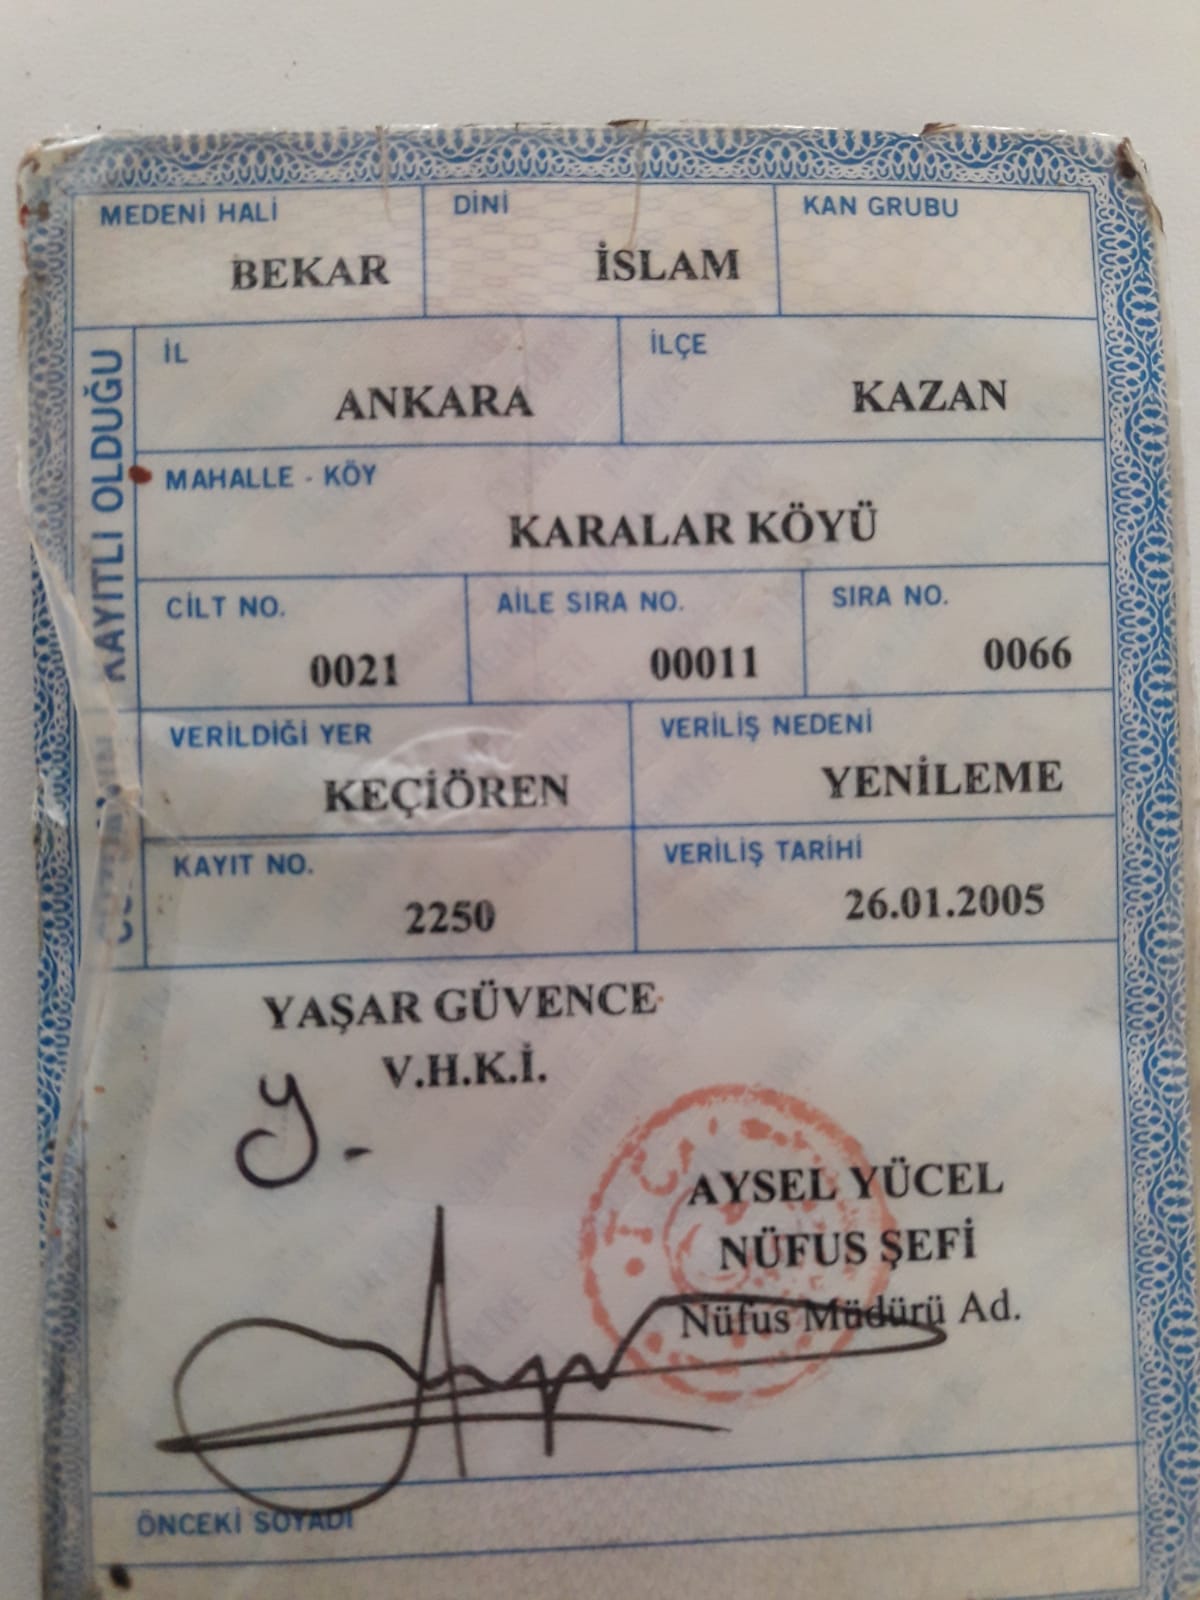 MEDENİ HALİ DİNİ KAN GRUBU
BEKAR İSLAM
KAYITLI OLDUĞU
İL İLÇE
ANKARA KAZAN
MAHALLE - KÖY
KARALAR KÖYÜ
CİLT NO. AİLE SIRA NO. SIRA NO.
0021 00011 0066
VERİLDİĞİ YER VERİLİŞ NEDENİ
KEÇİÖREN YENİLEME
KAYIT NO. VERİLİŞ TARİHİ
2250 26.01.2005
YAŞAR GÜVENCE
V.H.K.İ.
AYSEL YÜCEL
NÜFUS ŞEFİ
Nüfus Müdürü Ad.
ÖNCEKİ SOYADI